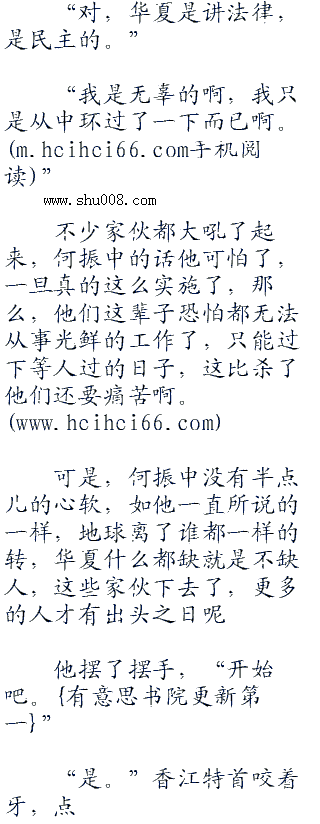 “对，华夏是讲法律，
是民主的。”
“我是无辜的啊，我只
是从中环过了一下而已啊。
(m.hcihci66.com手机阅
读)”
www.shu008.com
不少家伙都大吼了起
来，何振中的话他可怕了，
一旦真的这么实施了，那
么，他们这辈子恐怕都无法
从事光鲜的工作了，只能过
下等人过的日子，这比杀了
他们还要痛苦啊。
(www.hcihci66.com)
可是，何振中没有半点
儿的心软，如他一直所说的
一样，地球离了谁都一样的
转，华夏什么都缺就是不缺
人，这些家伙下去了，更多
的人才有出头之日呢
他摆了摆手，“开始
吧。{有意思书院更新第
一}”
“是。”香江特首咬着
牙，点